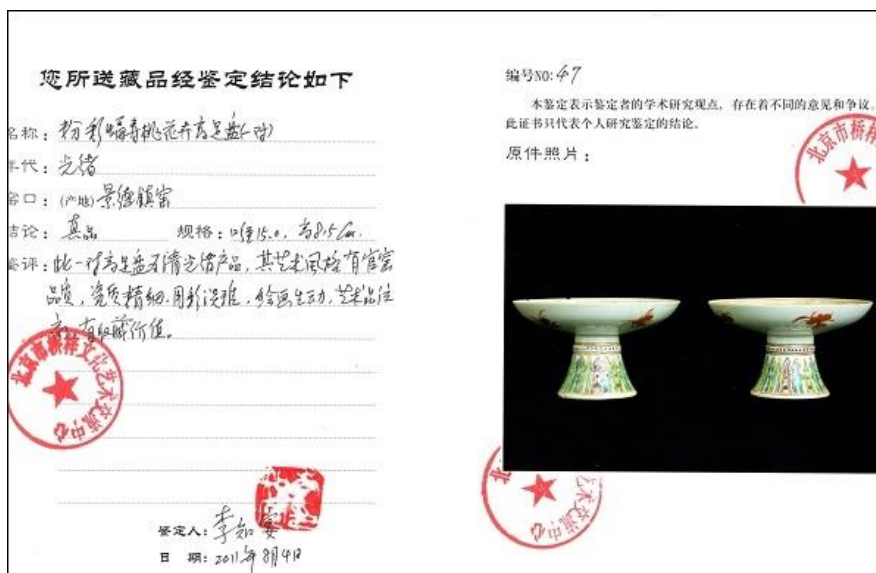 您所送藏品经鉴定结论如下
名称：粉彩福寿桃花卉高足盘(一对)
年代：光绪
窑口：(产地)景德镇窑
结论：真品 规格：口径15.0，高8.5Cm.
鉴评：此一对高足盘为清光绪产品，其艺术风格有官窑
品质，瓷质精细，用彩浓艳，绘画生动，艺术品位
高，有收藏价值。
北京市桥梓文化艺术交流中心
鉴定人：李知宴
日 期：2011年8月4日
编号NO:47
本鉴定表示鉴定者的学术研究观点，存在着不同的意见和争议。
此证书只代表个人研究鉴定的结论。
原件照片：
北京市桥梓
艺术交流中心